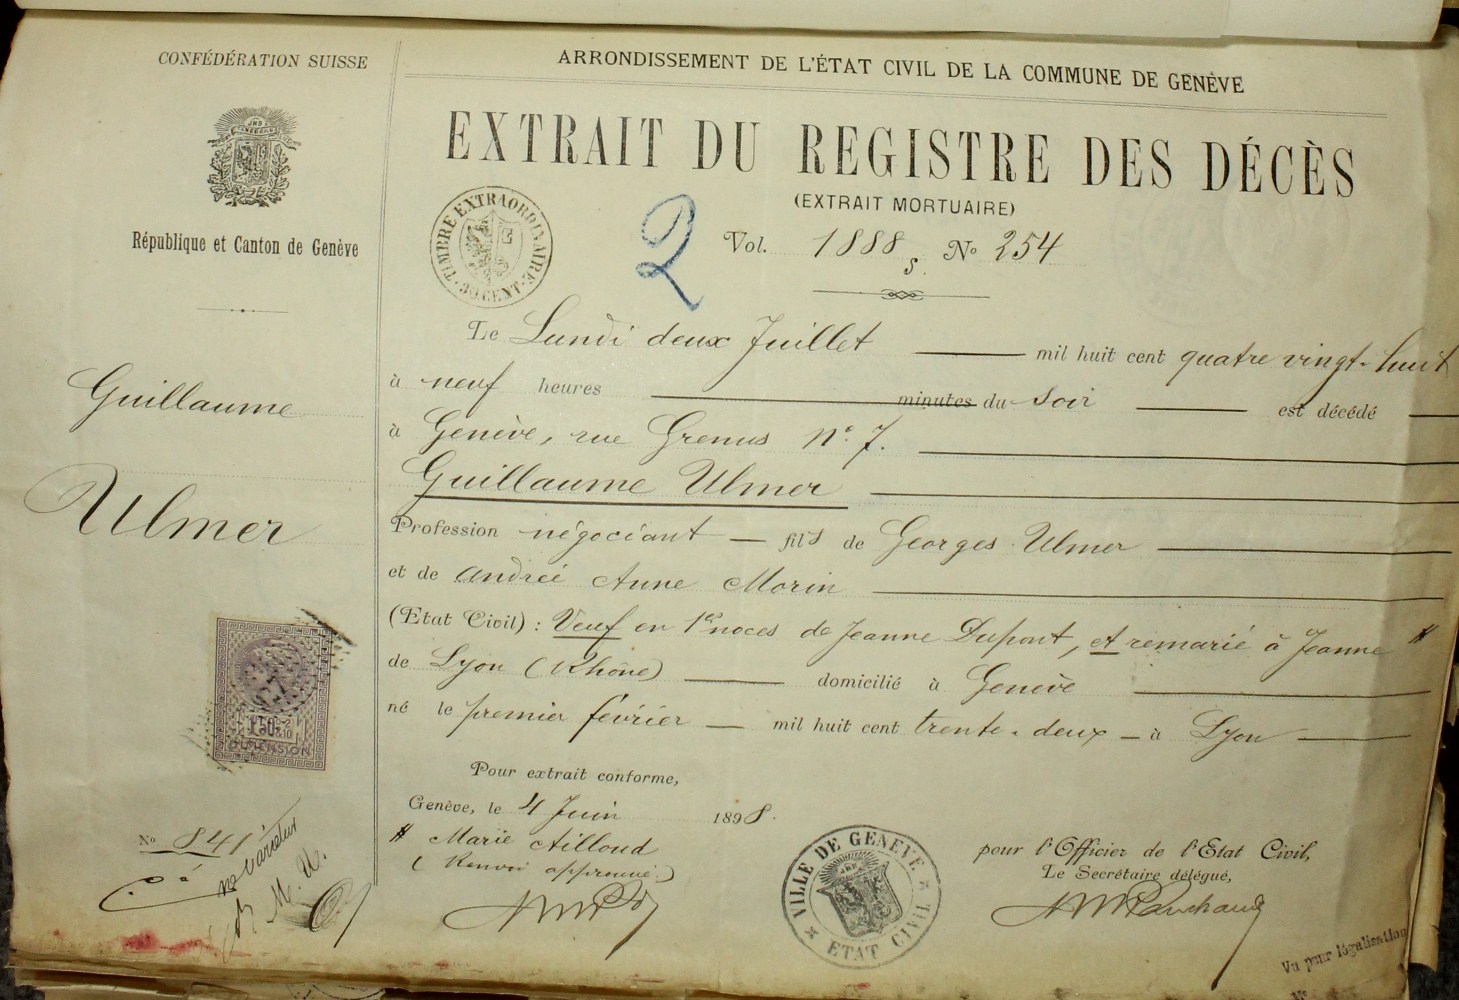 CONFÉDÉRATION SUISSE
République et Canton de Genève
Guillaume
Ulmer
1F50c
DIMENSION
No 841
ne varietur
ARRONDISSEMENT DE L'ÉTAT CIVIL DE LA COMMUNE DE GENÈVE
EXTRAIT DU REGISTRE DES DÉCÈS
(EXTRAIT MORTUAIRE)
TIMBRE EXTRAORDINAIRE
30 CENT.
2
Vol. 1888 s. No 254
Le Lundi deux Juillet mil huit cent quatre vingt-huit
à neuf heures minutes du soir est décédé
à Genève, rue Grenus No 7.
Guillaume Ulmer
Profession négociant fils de Georges Ulmer
et de Andrée Anne Morin
(Etat Civil) : Veuf en 1res noces de Jeanne Dupont, et remarié à Jeanne #
de Lyon (Rhône) domicilié à Genève
né le premier février mil huit cent trente-deux à Lyon
Pour extrait conforme,
Genève, le 4 Juin 1898.
# Marie Ailloud
(Renvoi approuvé)
VILLE DE GENÈVE
ETAT CIVIL
pour l'Officier de l'Etat Civil,
Le Secrétaire délégué,
Vu pour légalisation